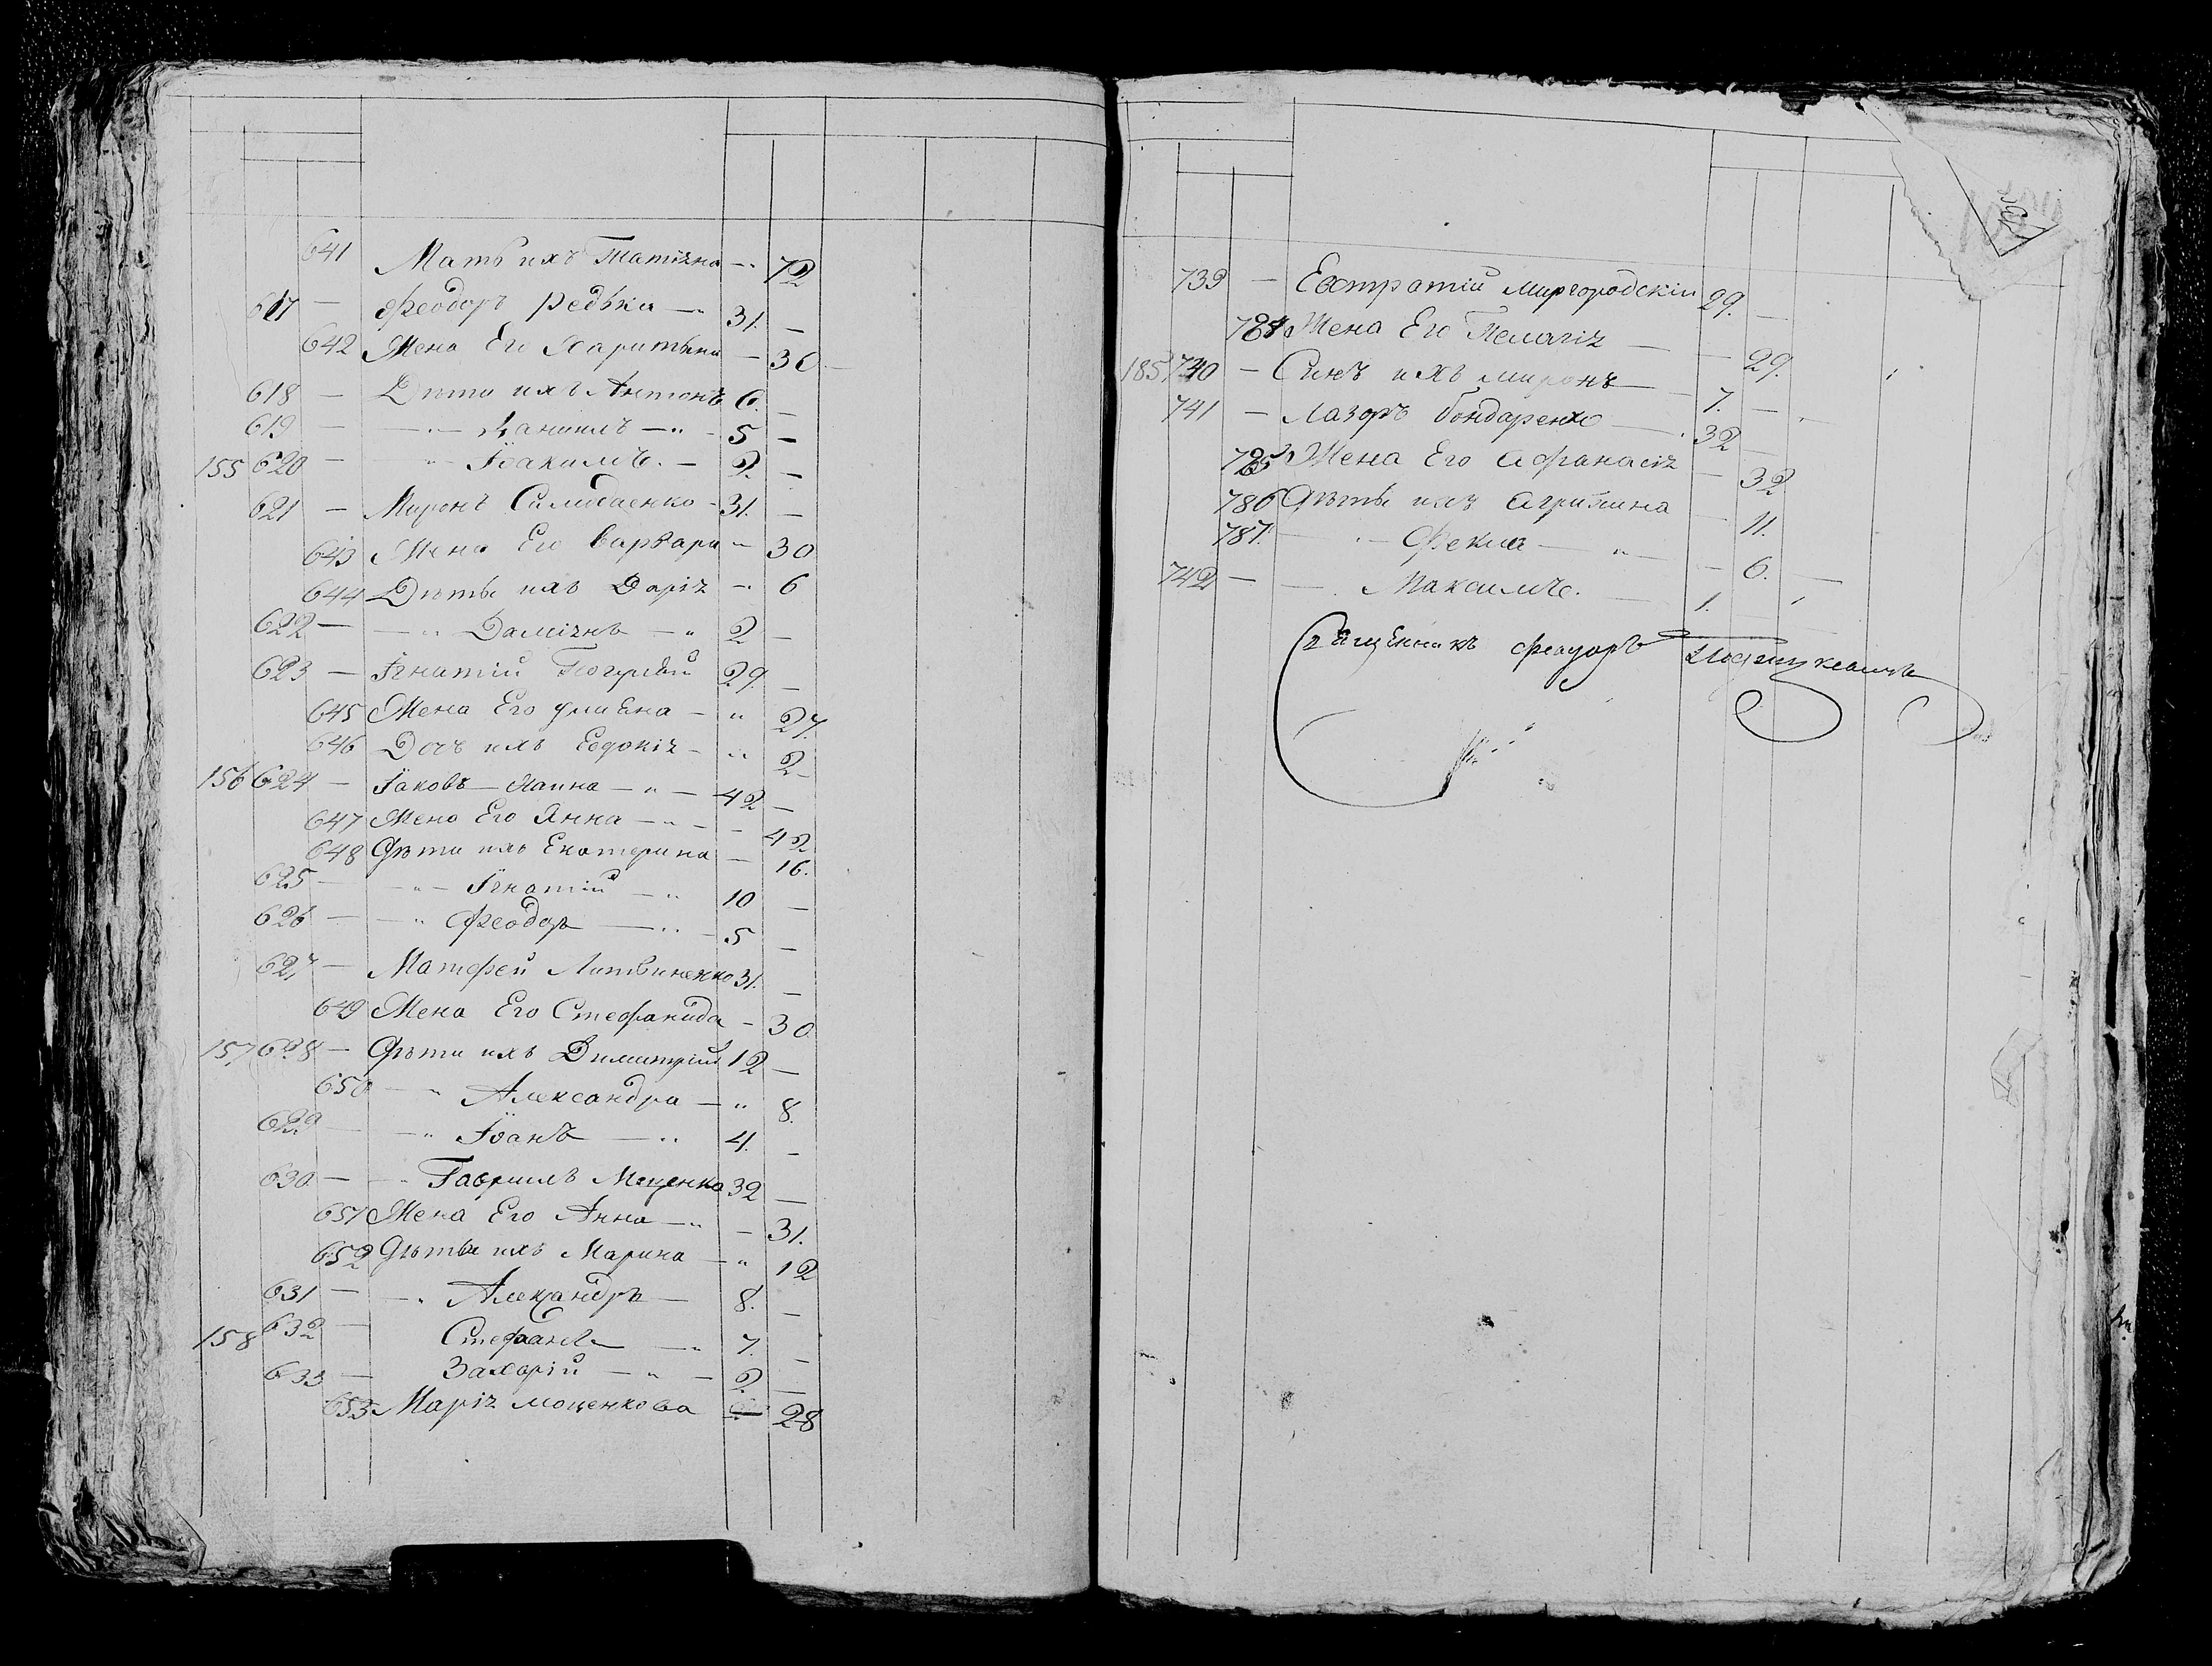 641 Мать ихъ Татіяна - 72
617 — Феодоръ Редька — 31. —
642 Жена Его Харитина — 30
618 — Дѣти ихъ Антонъ 6. —
619 — Даниилъ — 5 —
155 620 — Іоакимъ. — 2. —
621 — Миронъ 31. —
643 Жена Его Варвара - 30
644 Дѣти ихъ Дарія - 6
622 — Даміянъ — 2 —
623 — Ігнатій 29. —
645 Жена Его Уліяна - 27.
646 Дочь ихъ Евдокія - 2
156 624 — Іаковъ 42 —
647 Жена Его Анна — 42
648 Дѣти ихъ Екатерина — 16.
625 — Ігнатій — 10 —
626 — Феодоръ — 5 —
627 — Матфей Литвиненко 31. —
649 Жена Его Стефанида - 30
157 628 — Дѣти ихъ Димитрій 12 —
650 — Александра — 8.
629 — Іоанъ — 4. —
630 — Гавріилъ Моценко 32 —
651 Жена Его Анна — 31.
652 Дѣти ихъ Марина — 12
631 — Александръ — 8. —
158 632 — Стефанъ — 7. —
633 — Захарій — 2. —
653 Марія Моценкова — 28
739 — Евстратій Миргородскій 29. —
784 Жена Его Пелагія — 29.
185 740 — Синъ ихъ Миронъ — 7. —
741 — Лазоръ Бондаренко — 32
785 Жена Его Афанасія — 32
786 Дѣти ихъ Агрипина — 11.
787. — Фекла — 6. —
742 — Максимъ. — 1.
Священникъ Феодоръ